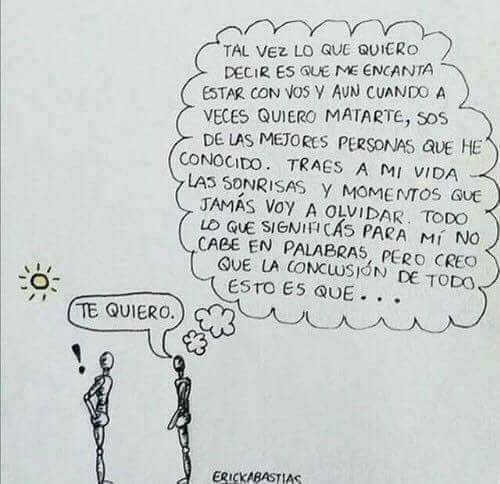 TAL VEZ LO QUE QUIERO
DECIR ES QUE ME ENCANTA
ESTAR CON VOS Y AUN CUANDO A
VECES QUIERO MATARTE, SOS
DE LAS MEJORES PERSONAS QUE HE
CONOCIDO. TRAES A MI VIDA
LAS SONRISAS Y MOMENTOS QUE
JAMÁS VOY A OLVIDAR. TODO
LO QUE SIGNIFICÁS PARA MÍ NO
CABE EN PALABRAS, PERO CREO
QUE LA CONCLUSIÓN DE TODO
ESTO ES QUE...
TE QUIERO.
!
ERICKABASTIAS